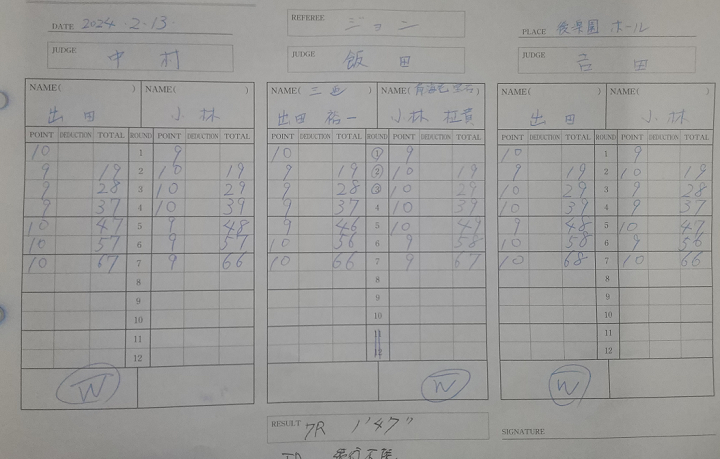 DATE 2024.2.13
REFEREE ジョン
PLACE 後楽園 ホール
JUDGE 中村
JUDGE 飯田
JUDGE 吉田
NAME( ) 出田 NAME( ) 小林
NAME(三迫) 出田 裕一 NAME( ) 小林
NAME( ) 出田 NAME( ) 小林
POINT DEDUCTION TOTAL ROUND POINT DEDUCTION TOTAL
10 1 9
9 19 2 10 19
9 28 3 10 29
9 37 4 10 39
10 47 5 9 48
10 57 6 9 57
10 67 7 9 66
8
9
10
11
12
W
POINT DEDUCTION TOTAL ROUND POINT DEDUCTION TOTAL
10 ① 9
9 19 ② 10 19
9 28 ③ 10 29
9 37 4 10 39
9 46 5 10 49
10 56 6 9 58
10 66 7 9 67
8
9
10
11
12
W
POINT DEDUCTION TOTAL ROUND POINT DEDUCTION TOTAL
10 1 9
9 19 2 10 19
10 29 3 9 28
10 39 4 9 37
9 48 5 10 47
10 58 6 9 56
10 68 7 10 66
8
9
10
11
12
W
RESULT 7R 1'47"
SIGNATURE